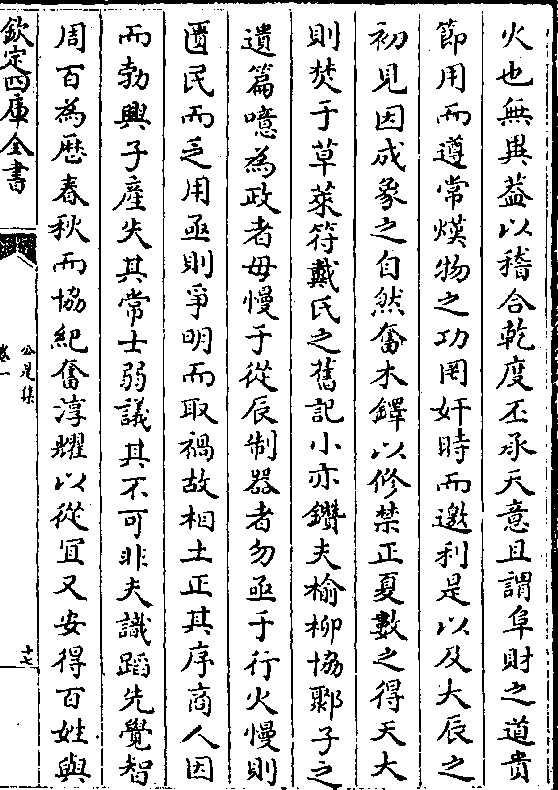 火也無異葢以稽合乾度丕承天意且謂阜財之道貴
節用而遵常熯物之功罔奸時而邀利是以及大辰之
初見因成象之自然奮木鐸以修禁正夏數之得天大
則焚于草萊符戴氏之舊記小亦鑽夫榆柳協鄹子之
遺篇噫為政者毋慢于從辰制器者勿亟于行火慢則
匱民而乏用亟則爭明而取禍故相土正其序商人因
而勃興子產失其常士弱議其不可非夫識蹈先覺智
周百為歴春秋而協紀奮淳耀以從宜又安得百姓與
欽定四庫全書
公是集
卷一
十七